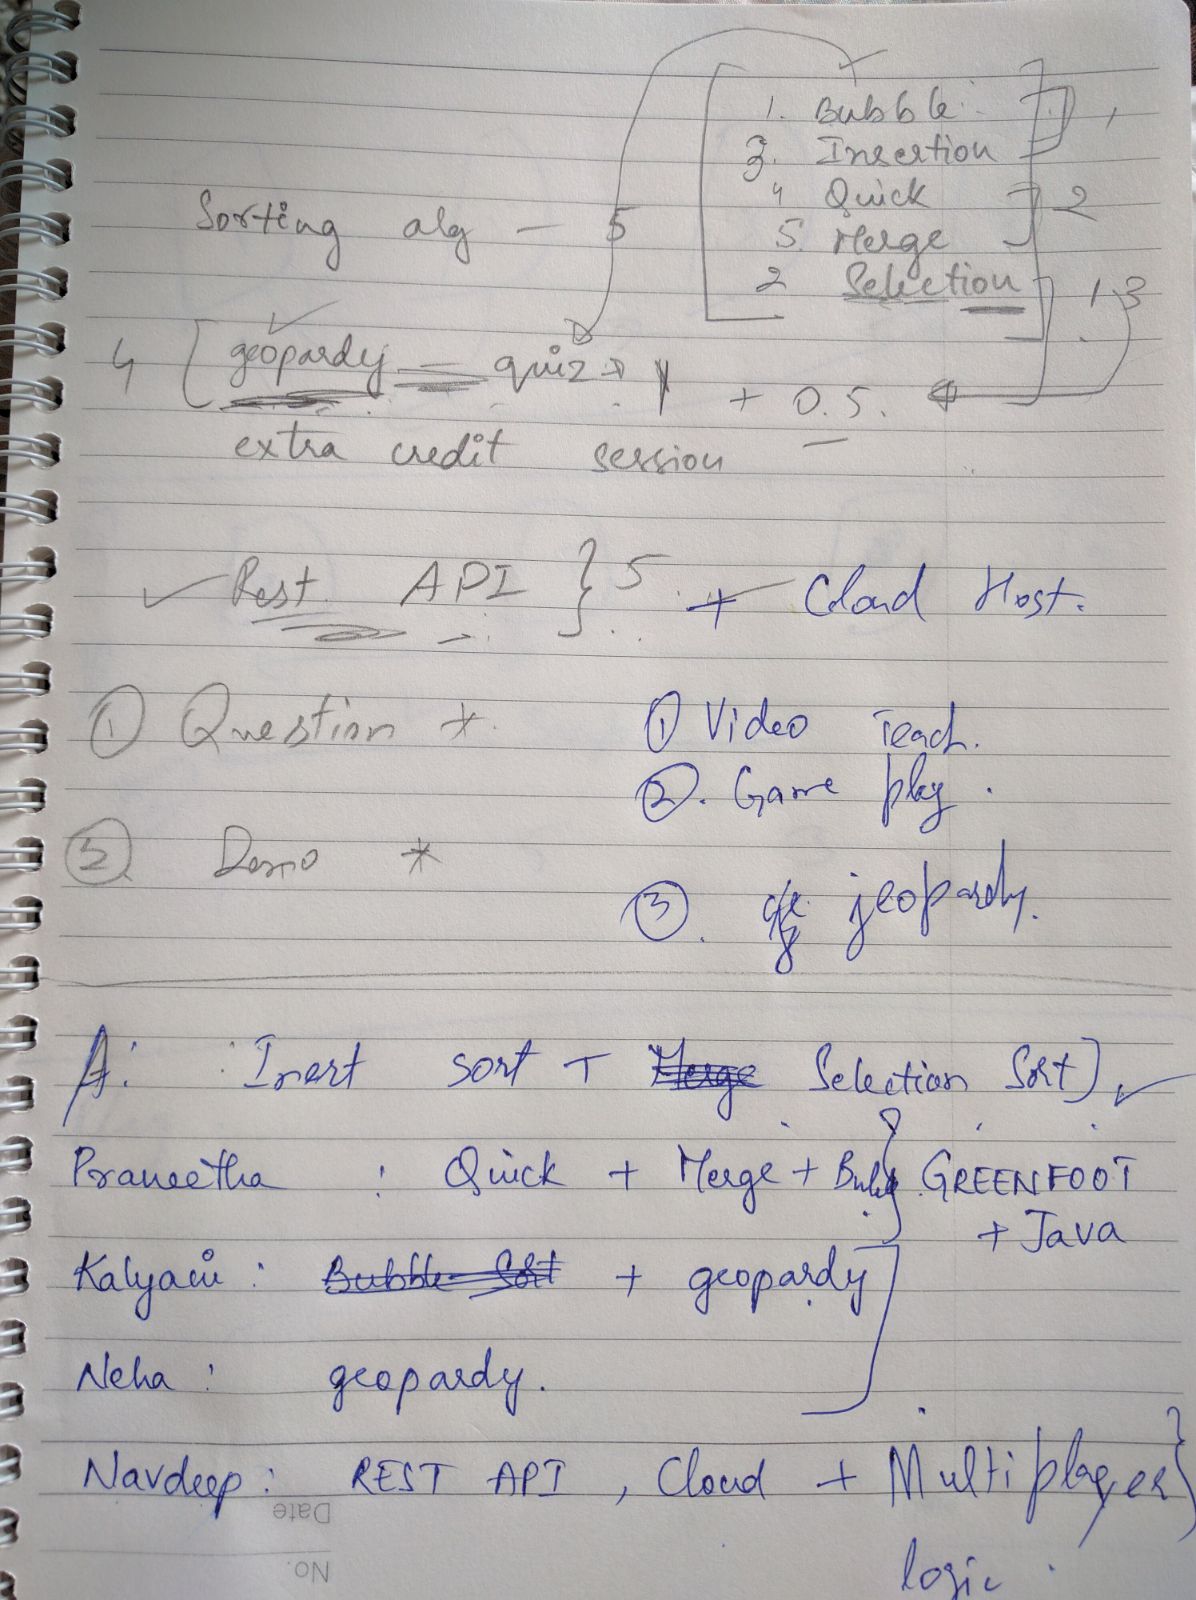 1. Bubble 1
3. Insertion
4 Quick 2
Sorting alg - 5
5. Merge
2 Selection 1 3
4 [ geopardy - quiz → 1 + 0.5.
extra credit session
Rest API } 5 + Cloud Host.
① Question * ① Video Teach.
②. Game play.
② Demo *
③. jeopardy.
A: Insert sort + Selection Sort]
Praneetha : Quick + Merge + Bubl } GREENFOOT
+ Java
Kalyani : Bubble Sort + geopardy
Neha : geopardy.
Navdeep : REST API, Cloud + Multiplayer }
logic.
Date
No.